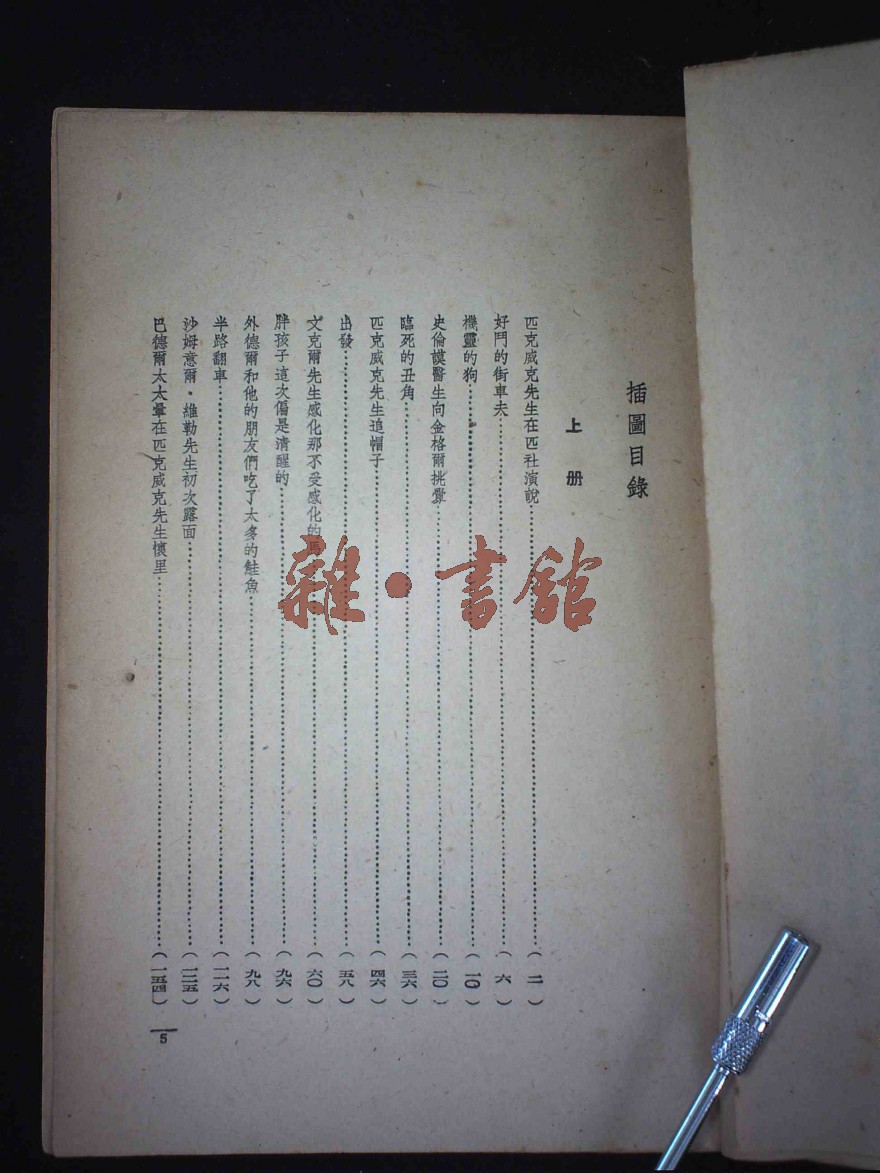 插圖目錄
上册
匹克威克先生在匹社演說(二)
好鬥的街車夫(六)
機靈的狗(一〇)
史倫謨醫生向金格爾挑釁(二〇)
臨死的丑角(三六)
匹克威克先生追帽子(四六)
出發(五八)
文克爾先生感化那不受感化的馬(六〇)
胖孩子這次偏是清醒的(九六)
外德爾和他的朋友們吃了太多的鮭魚(九八)
半路翻車(一一六)
沙姆意爾・維勒先生初次露面(一二五)
巴德爾太太暈在匹克威克先生懷里(一五四)
5
雜・書館